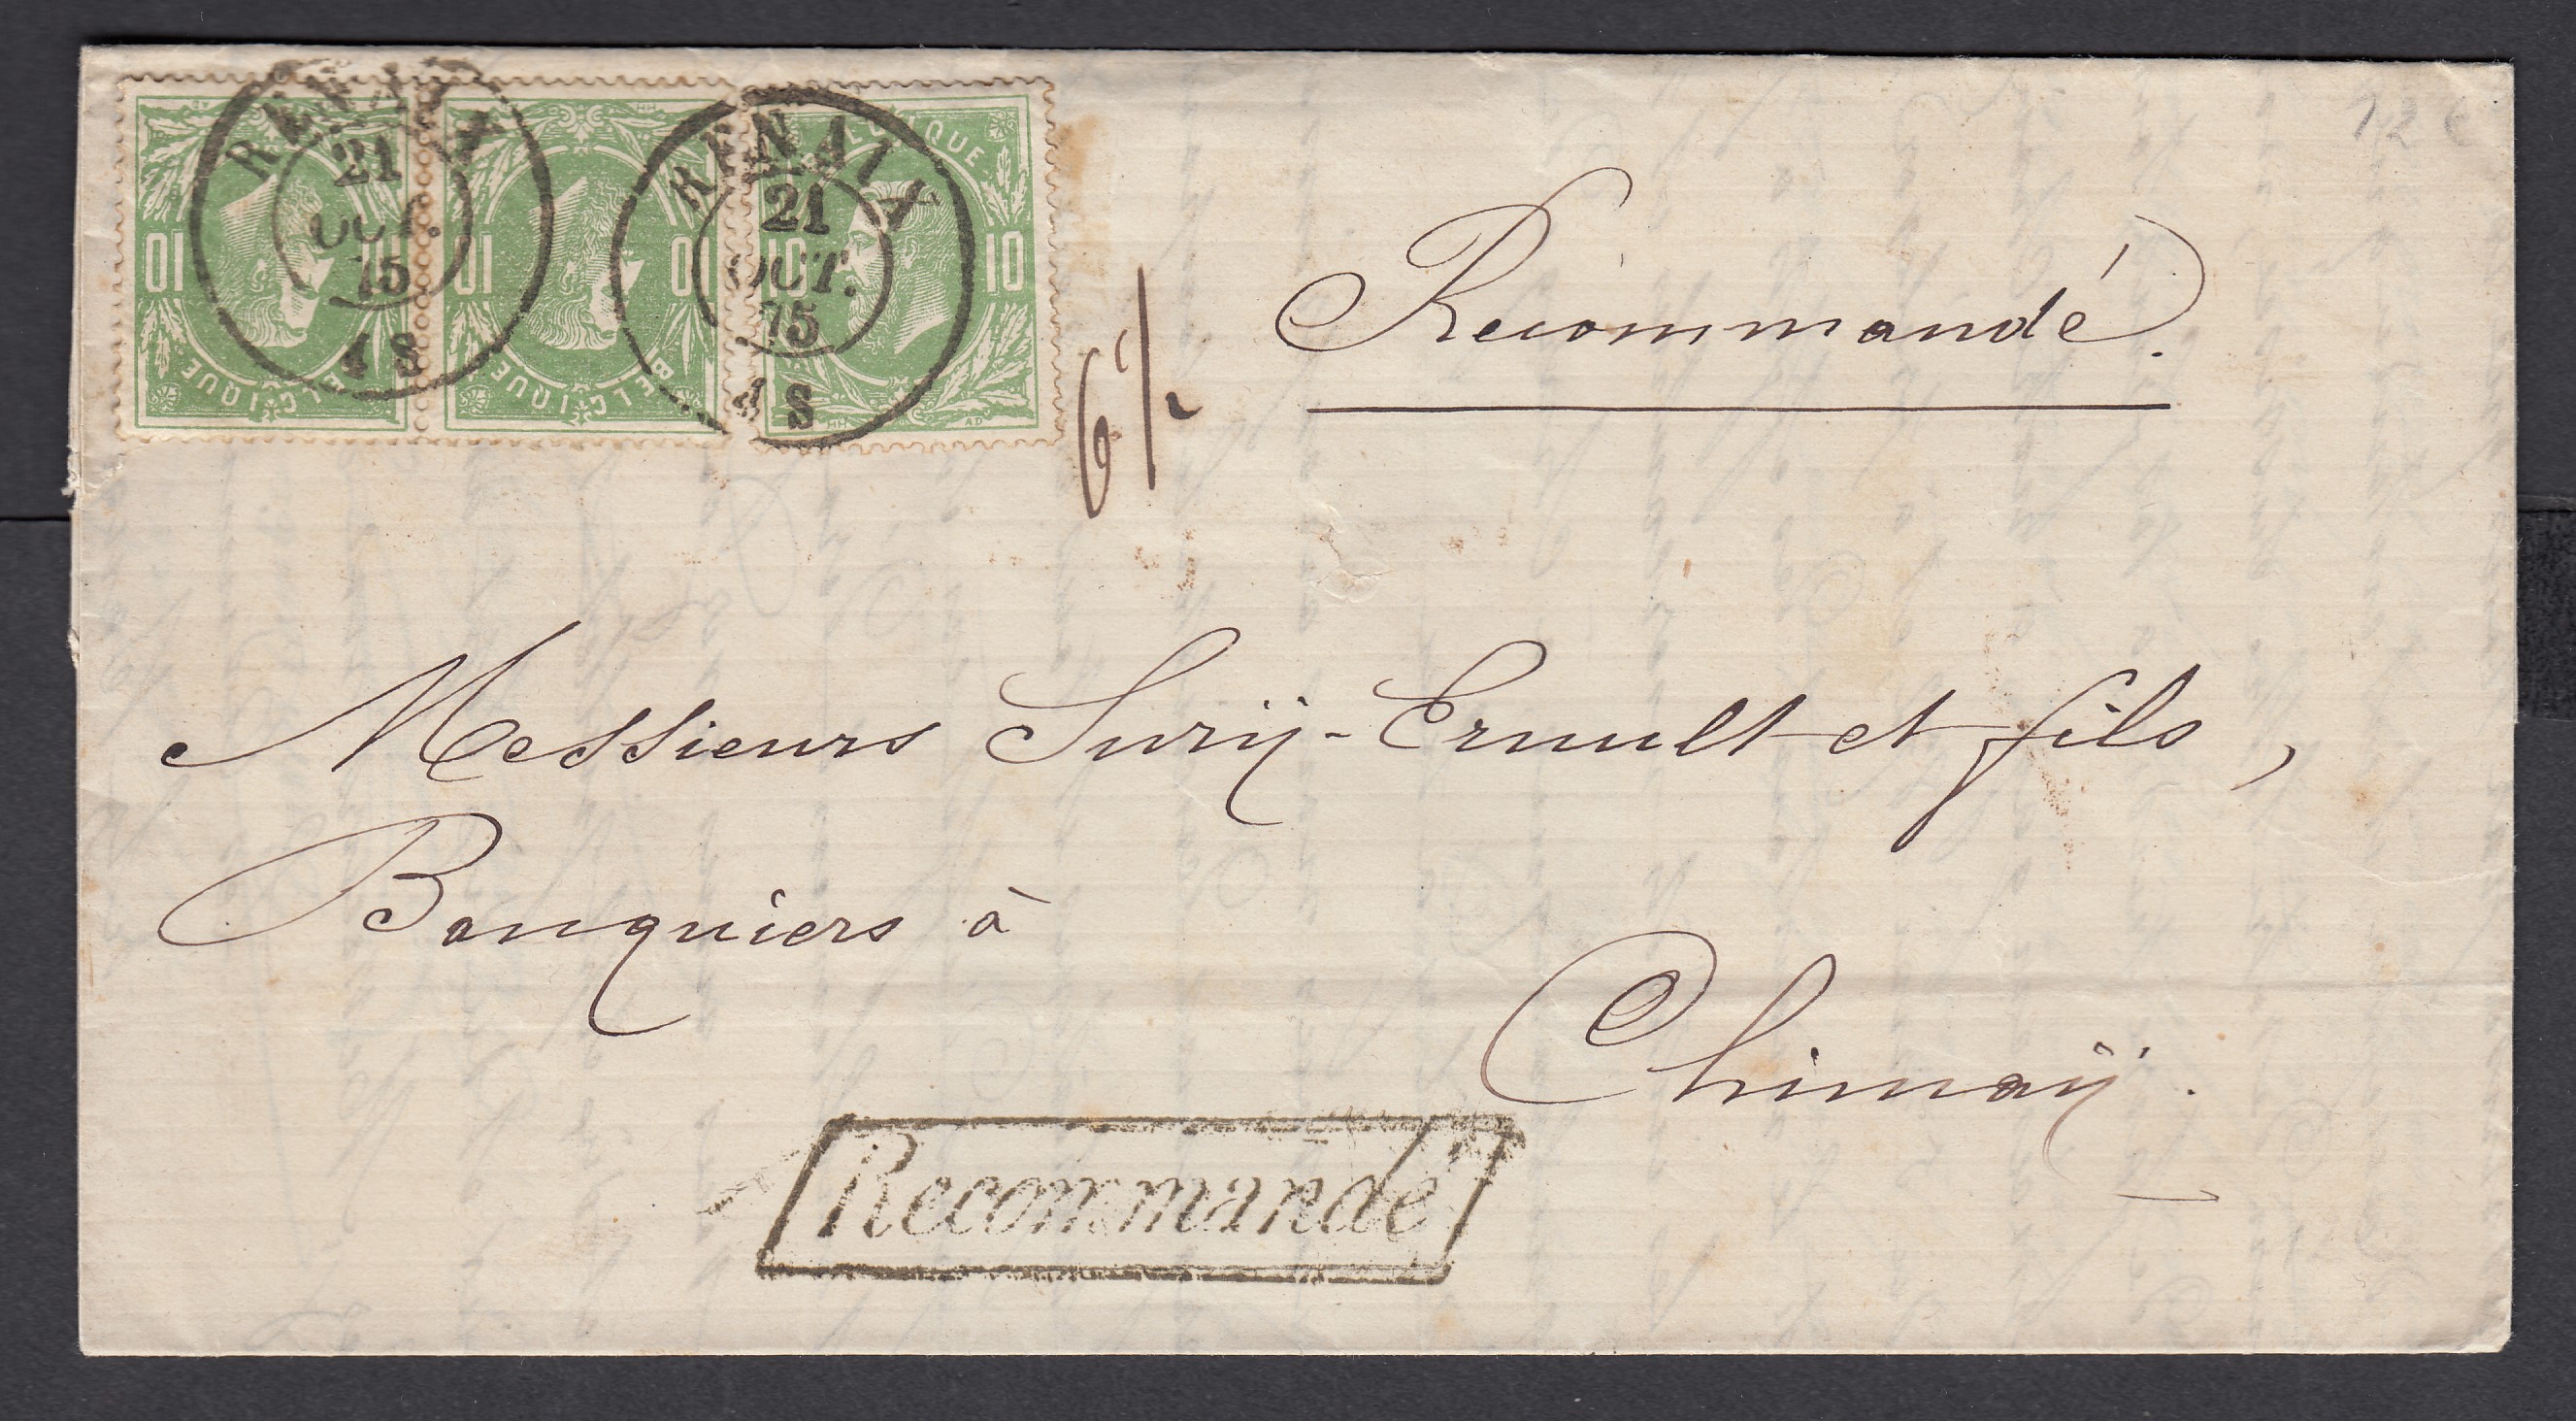 12 €
RENAIX
21
OCT.
75
4 S
RENAIX
21
OCT.
75
4 S
10 10
BELGIQUE
10 10
BELGIQUE
10 10
BELGIQUE
6 1/2
Recommandé.
Messieurs Surÿ-Ernult et fils,
Banquiers à
Chimaÿ.
Recommandé